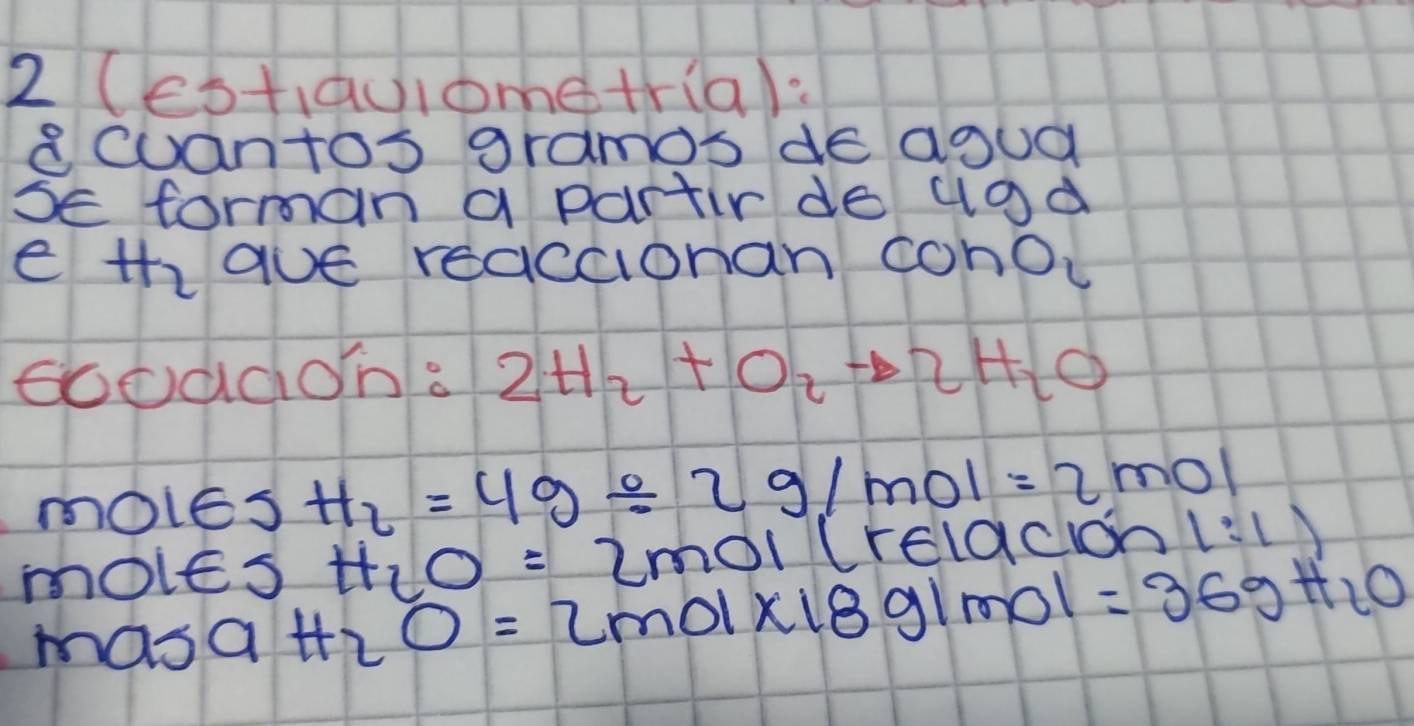 2 (estiquiometría):
¿cuantos gramos de agua
se forman a partir de 4g d
e H₂ que reaccionan con O₂
ecuación: 2H₂ + O₂ → 2H₂O
moles H₂ = 4g ÷ 2g/mol = 2mol
moles H₂O = 2mol (relación 1:1)
masa H₂O = 2mol x 18g/mol = 36g H₂O